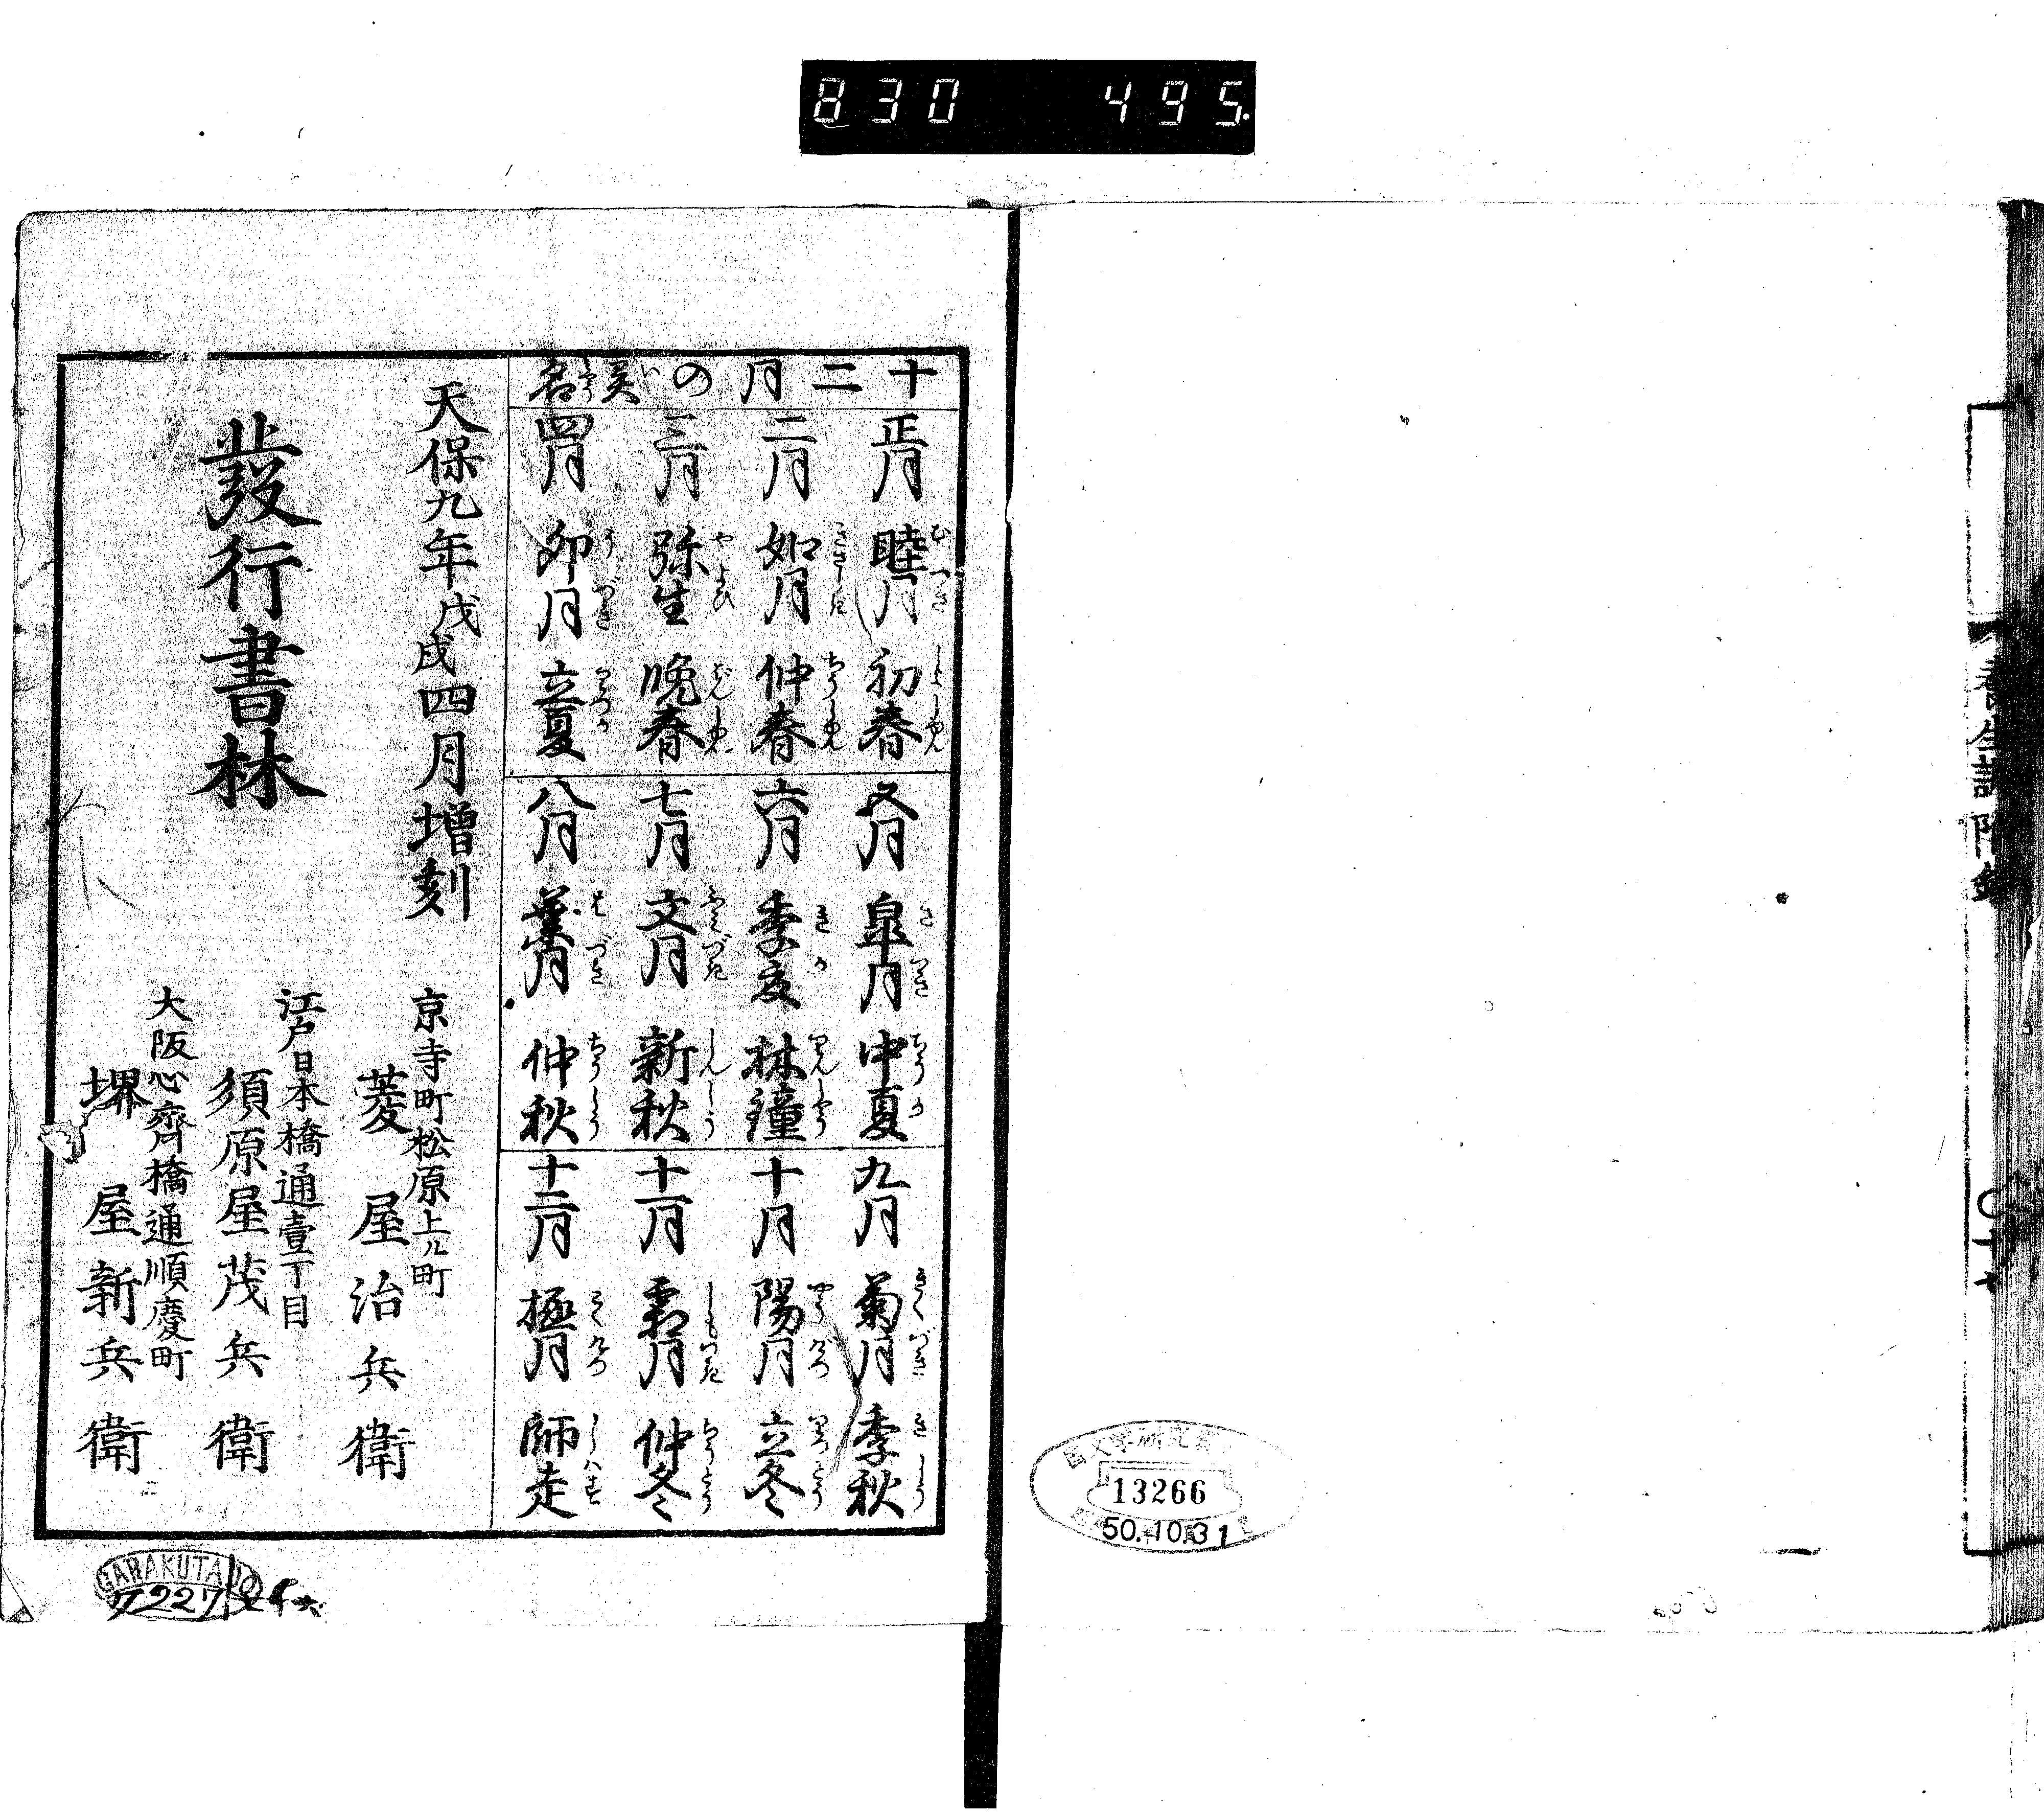 830 495.
十二月の異名
正月 睦月 初春
二月 如月 仲春
三月 弥生 晩春
四月 卯月 立夏
五月 皐月 中夏
六月 季夏 林鐘
七月 文月 新秋
八月 葉月 仲秋
九月 菊月 季秋
十月 陽月 立冬
十一月 霜月 仲冬
十二月 極月 師走
天保九年戊戌四月増刻
發行書林
京寺町松原上ル町
菱屋治兵衛
江戸日本橋通壹丁目
須原屋茂兵衛
大阪心齊橋通順慶町
堺屋新兵衛
13266
50.10.31
GARAKUTA
7227